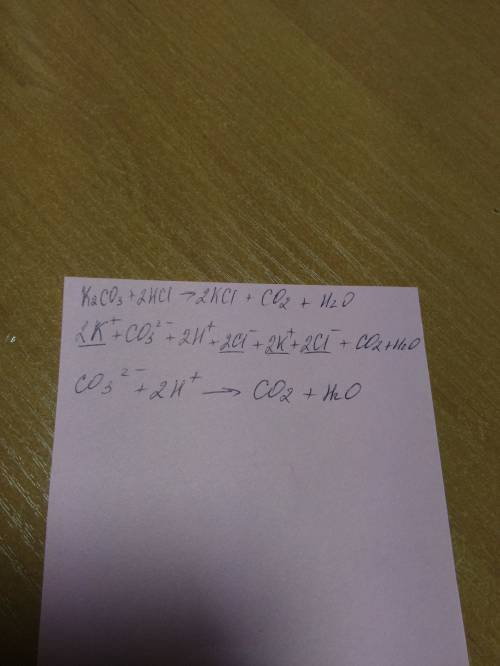 K₂CO₃ + 2HCl → 2KCl + CO₂ + H₂O
2K⁺ + CO₃²⁻ + 2H⁺ + 2Cl⁻ + 2K⁺ + 2Cl⁻ + CO₂ + H₂O
CO₃²⁻ + 2H⁺ → CO₂ + H₂O